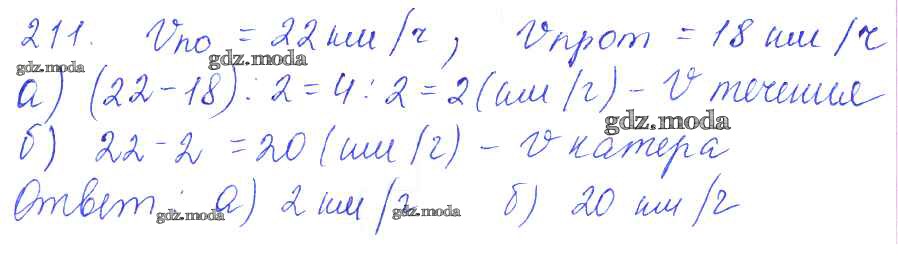 211. Vпо = 22 км/ч, Vпрот = 18 км/ч
gdz.moda gdz.moda
а) (22-18) : 2 = 4 : 2 = 2 (км/ч) - V течения
gdz.moda
б) 22-2 = 20 (км/ч) - V катера
Ответ: а) 2 км/ч б) 20 км/ч
gdz.moda gdz.moda